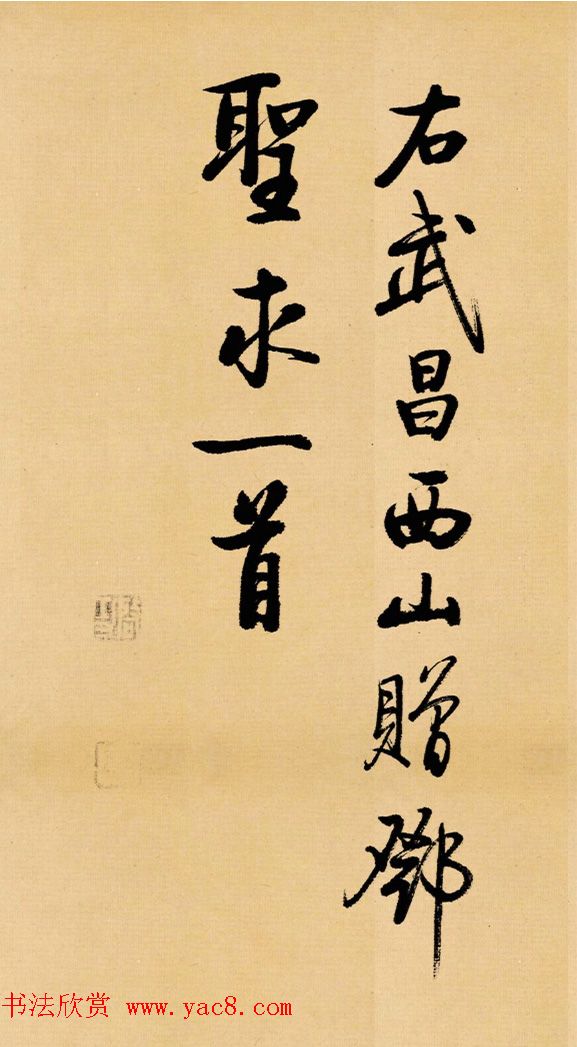 右武昌西山贈鄧
聖求一首
书法欣赏 www.yac8.com